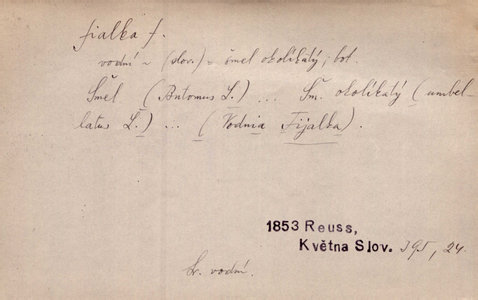 fialka f.
vodní ~ (slov.) = šmel okolíkatý; bot.
Šmel (Butomus L.) ... Šm. okolíkatý (umbel-
latus L.) ... (Vodnia Fijalka).
1853 Reuss,
Května Slov. 395, 24.
Sr. vodní.